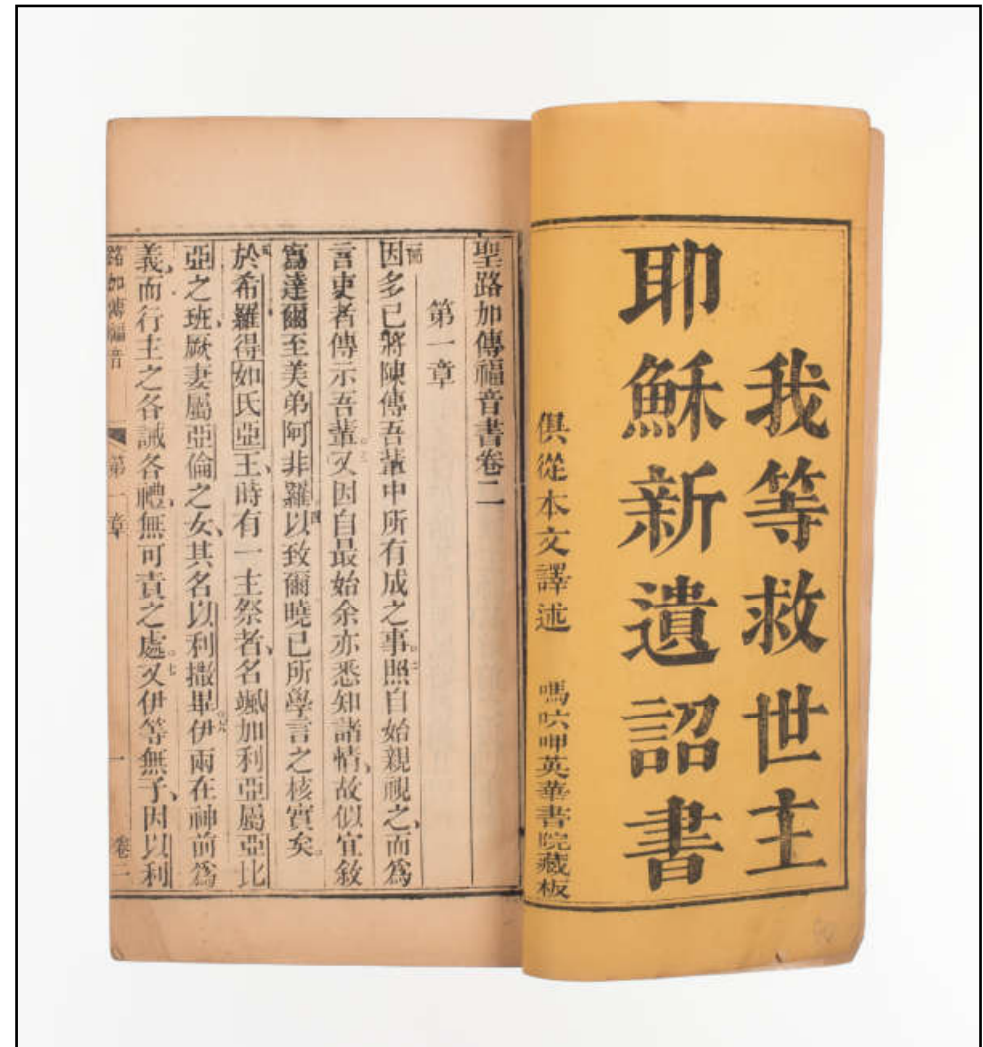 我等救世主
耶穌新遺詔書
俱從本文譯述
嗎㕸呷英華書院藏板
聖路加傳福音書卷二
第一章
因多已將陳傳吾輩中所有成之事照自始親視之而爲
言吏者傳示吾輩又因自最始余亦悉知諸情故似宜敘
寫達爾至美弟阿非羅以致爾曉已所學言之核實矣
於希羅得如氏亞王時有一主祭者名颯加利亞屬亞比
亞之班厥妻屬亞倫之女其名以利撒畢伊兩在神前爲
義而行主之各誡各禮無可責之處又伊等無子因以利
路加傳福音 第一章 一 卷二